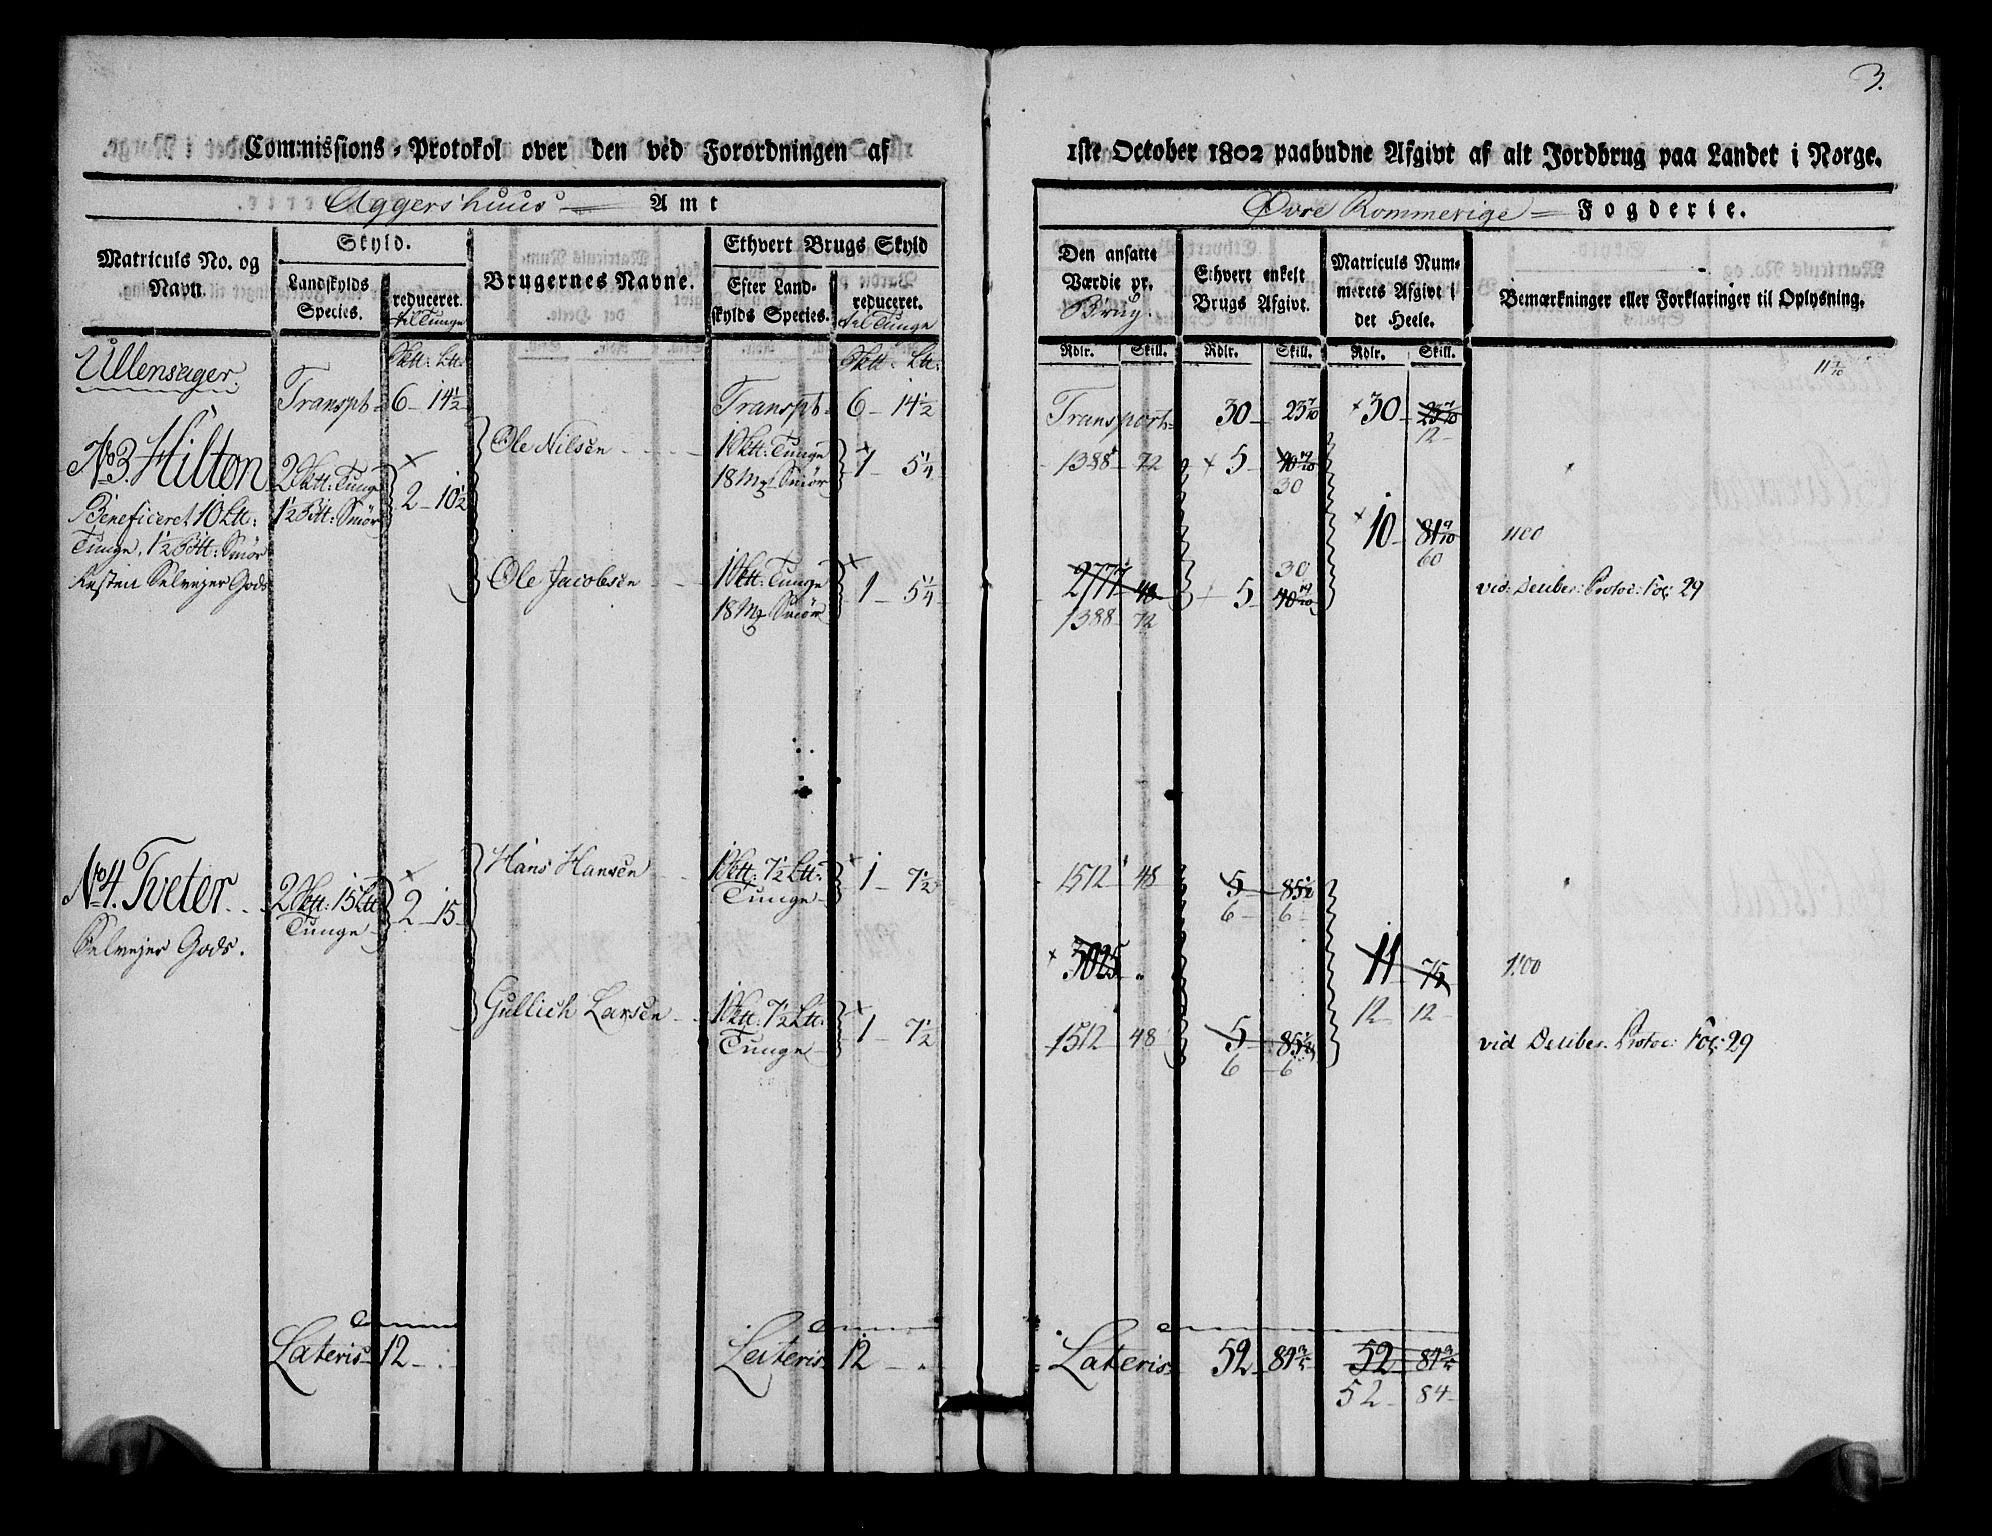 3.
Commissions-Protokol over den ved Forordningen af 1ste October 1802 paabudne Afgivt af alt Jordbrug paa Landet i Norge.
Aggershuus Amt
Øvre Rommerige Fogderie.
Matriculs No. og Navn.
Skyld.
Landskylds Species.
reduceret. til Tunge
Brugernes Navne.
Ethvert Brugs Skyld
Efter Landskylds Species.
reduceret. til Tunge
Den ansatte Værdie pr. Brug.
Ethvert enkelt Brugs Afgivt.
Matriculs Nummerets Afgivt i det Heele.
Bemærkninger eller Forklaringer til Oplysning.
Rdlr. Skill. Rdlr. Skill. Rdlr. Skill.
Ullensager.
Transpt 6 - 14½ Transpt 6 - 14½ Transport 30 - 23 7/10 30 - 23 7/10
12
11 7/10
No 3. Hilton 2 Sktt: Tunge 2 - 10½ Ole Nilsen 1 Sktt: Tunge 1 - 5¼ 1388 - 72 5 - 40 19/20
1½ Btt: Smør 18 Mk Smør 30
Beneficeret 10 Ltt:
Tunge, 1½ Btt: Smør
Resten Selvejer Gods
10 - 81 9/10
60
Ole Jacobsen 1 Sktt: Tunge 1 - 5¼ 2777 - 48 5 - 40 19/20
18 Mk Smør 1388 - 72 30
vid: Deliber: Protoc: Fol: 29
No 4. Tveter 2 Sktt: 15 Ltt 2 - 15 Hans Hansen 1 Sktt: 7½ Ltt: 1 - 7½ 1512 48 5 - 85½
Tunge Tunge 6 - 6
Selvejer Gods.
3025 11 - 75
12 - 12
Gullich Larsen 1 Sktt: 7½ Ltt: 1 - 7½ 1512 48 5 - 85½
Tunge 6 - 6
vid Deliber: Protoc: Fol: 29
Lateris 12 - Lateris 12 - Lateris 52 - 84 3/5 52 84 3/5
52 - 84